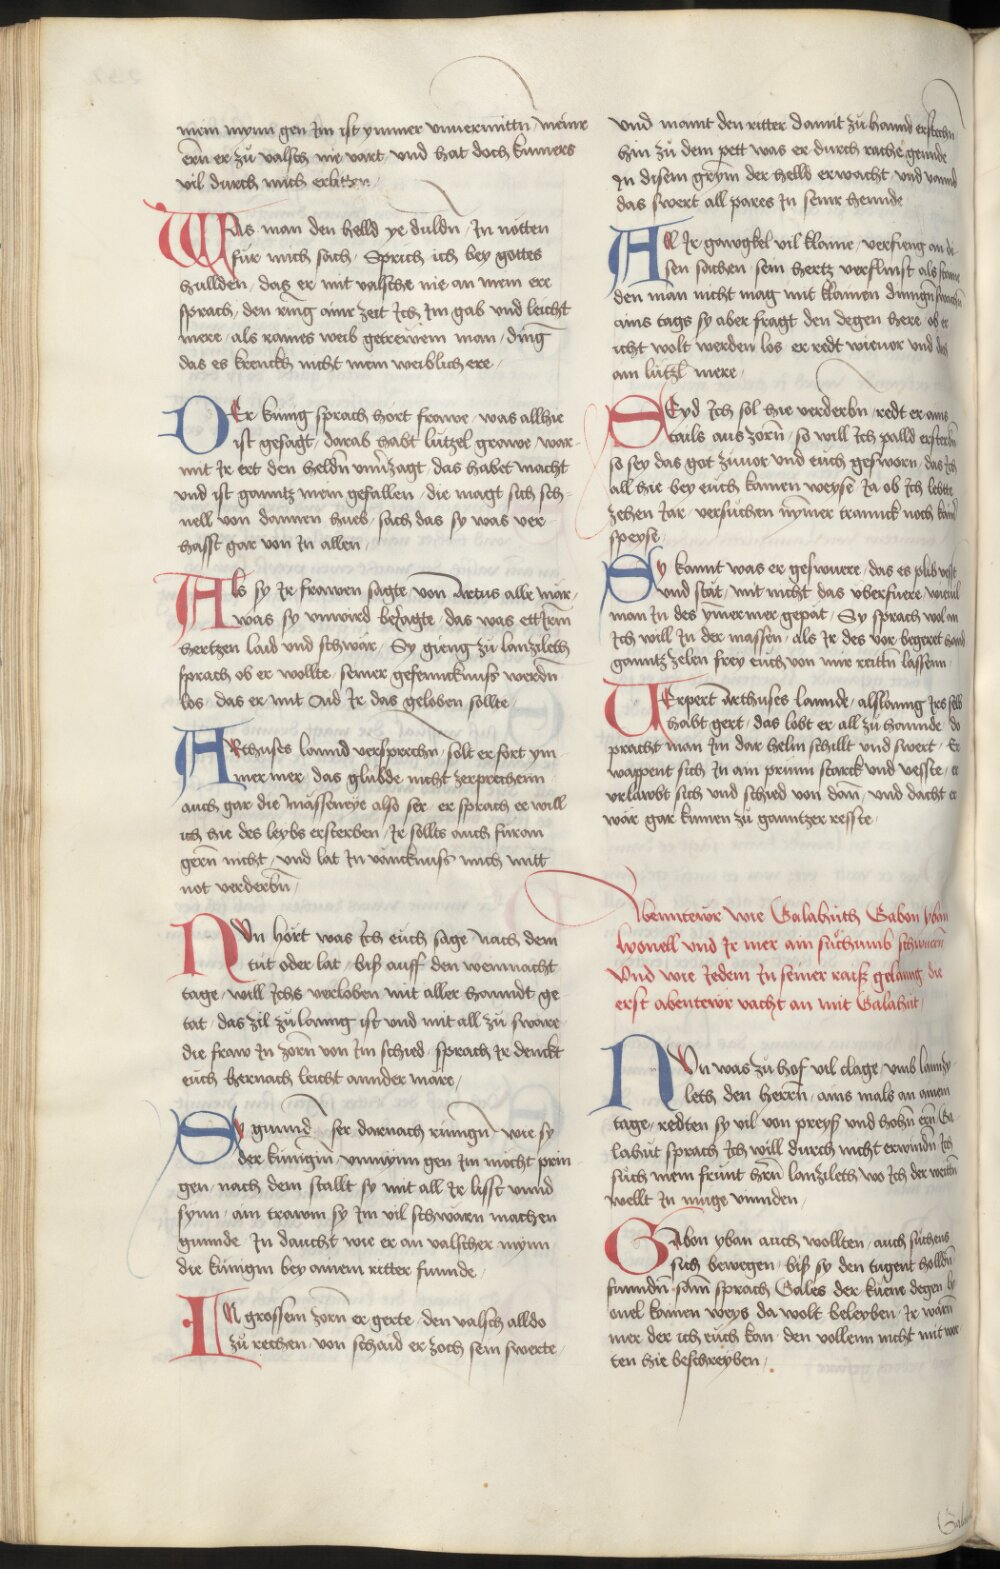 mein mynn gen Im ist ymmer vnuermittn / meinr
ern er zů valsch nie vart / vnd hat doch kumers
vil durch mich erlitten /
WAs man den helld ye duldn / In nötten
für mich sach / Sprich ich bey gottes
hullden / das er mit valsche nie an mein ere
sprach / den ring ainr zeit Ich Im gab vnd leicht
mere / als raines weib getrewem man / ding
das es krenckh nicht mein weiblich ere /
DEr kunig sprach hört frawe / was allhie
ist gesagt / darab habt lützel grawe / war
mit Ir ert den heldn vnuerzagt / das habet macht
vnd ist ganntz mein gefallen / die magt sich sch
nell von dannen hueb / sach das sy was ver
hasst gar von In allen /
Als sy Ir frawen sagte von Artus alle mär /
was sy vnwird betagte / das was
hertzen laid vnd schwär / Sy gieng zu lanzileth
sprach ob er wollte / seiner gefennckhnuss werdn
los / das er mit Aid Ir das geloben sollte /
ARthuses lannd versprechn / solt er fort ym
mer mer / das glübde nicht zerprechenn
auch gar die masseneye also ser / er sprach ee will
ich hie des leybs ersterben / Ir sollts auch füran
gern nicht / vnd lat In vanckhnuss mich mitt
not verderbn /
NVn hört was Ich euch sage nach dem
tut oder lat / biß auff den weinnacht
tage / will Ichs verloben mit aller hanndt ge
tat / das zil zů lanng ist vnd mit all zů sware
die fraw In zorn von Im schied / sprach Ir denckt
euch hernach leicht annder märe /
Sy gunnd ser darnach ringn / wie sy
der künigin vnmynn gen Im mocht prin
gen / nach dem stallt sy mit all Ir lisst vnnd
synn / ain trawm sy Im vil schwärn machen
gunnde / In daucht wie er an valscher mynn
die künigin bey ainem ritter funnde /
IN grossem zorn er gerte / den valsch alldo
zů rechen / von schaid er zoch sein swerte /
vnd maint den ritter damit zu hannd erstechn
hin zů dem pett was er durch rache gennde
In disem grym der helld erwacht / vnd vannd
das swert all pares In seinr hennde
All Ir gawgkel vil klaine / verfieng an di
sen sachen / sein hertz verflinst als staine
den man nicht mag mit klainen dinngn
ains tags sy aber fragt den degen here / ob er
icht wolt werden los / er redt wieuor vnd des
am lützl mere /
SEyd Ich sol hie verderbn / redt er ains
tails aus zorn / so will Ich palld ersterbn
so sey das got zuuor vnd euch gesworn / das Ich
all hie bey euch kainen weyse Ia ob Ich lebtte
zehen Iar / versuchen nymer trannck noch kain
speyse /
Sy kannt was er geswuere / das es plib vest
vnd stät / mit nicht das vberfuere / wieuil
man In des ymermer gepat / Sy sprach wol an
Ich will In der massen / als Ir des vor begeret hand
ganntz zelen frey euch von mir reittn lassenn
VErpert Arthuses lannde / alslanng Irs selb
habt gert / das lobt er all zů hannde / do
pracht man Im dar helm schillt vnd swert / Er
wappent sich In ain prinn starck vnd vesste / er
vrlawbt sich vnd schied von dan / vnd dacht er
wär gar kumen zů ganntzer resste /
Abenntewr wie Galahuth Gabon yban
lyonell vnd Ir mer ain suchumb schwurn
Vnd wie Iedem In seiner raiß gelanng / die
erst abentewr vacht an mit Galahut /
NVn was zů hof vil clage / vmb lannzy
leth den herrn / ains mals an ainem
tage / redten sy vil von preyß vnd hohn ern Ga
lahut sprach Ich will durch nicht erwindn Ich
sůch mein frunt hern lanzileth wo Ich der weittn
wellt In muge vinnden /
GAbon yban auch wollten / auch suchens
sich bewegen / biß sy den tugent holldn
funndn / sam sprach Gales der küene degen ly
onel kainen weys da wolt beleyben / Ir warn
mer der ich euch kan / den vollenn nicht mit wor
ten hie beschreyben /